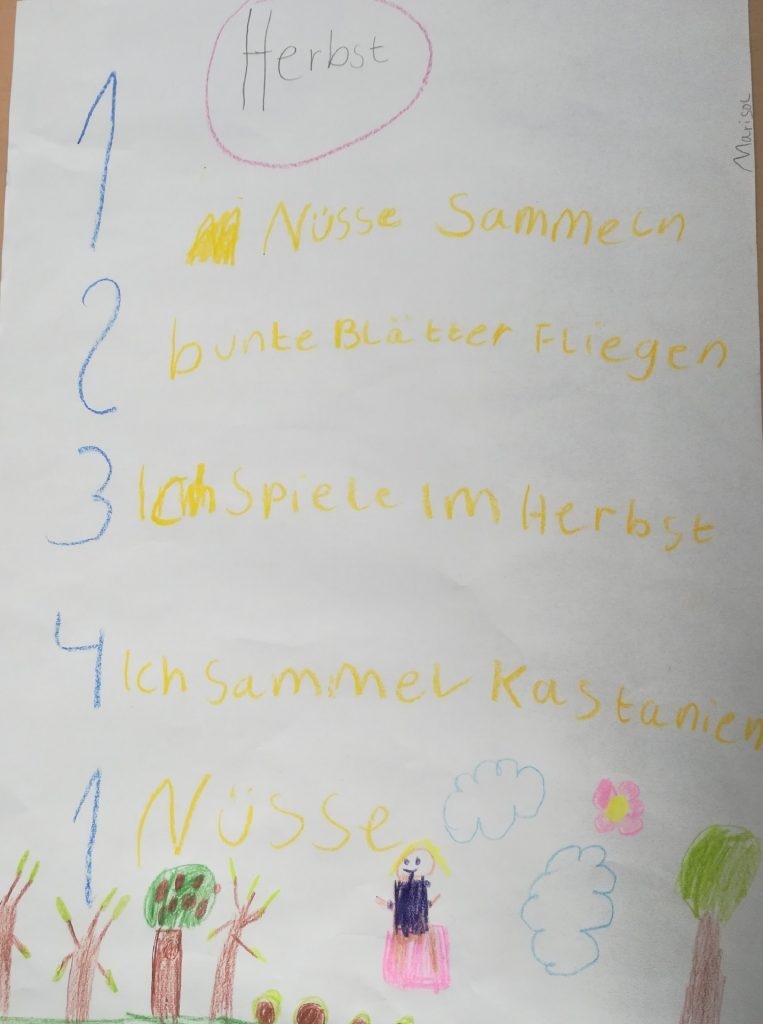 Herbst
Marisol
1
Nüsse Sammeln
2
bunte Blätter Fliegen
3 Ich Spiele Im Herbst
4 Ich Sammel Kastanien
1 Nüsse